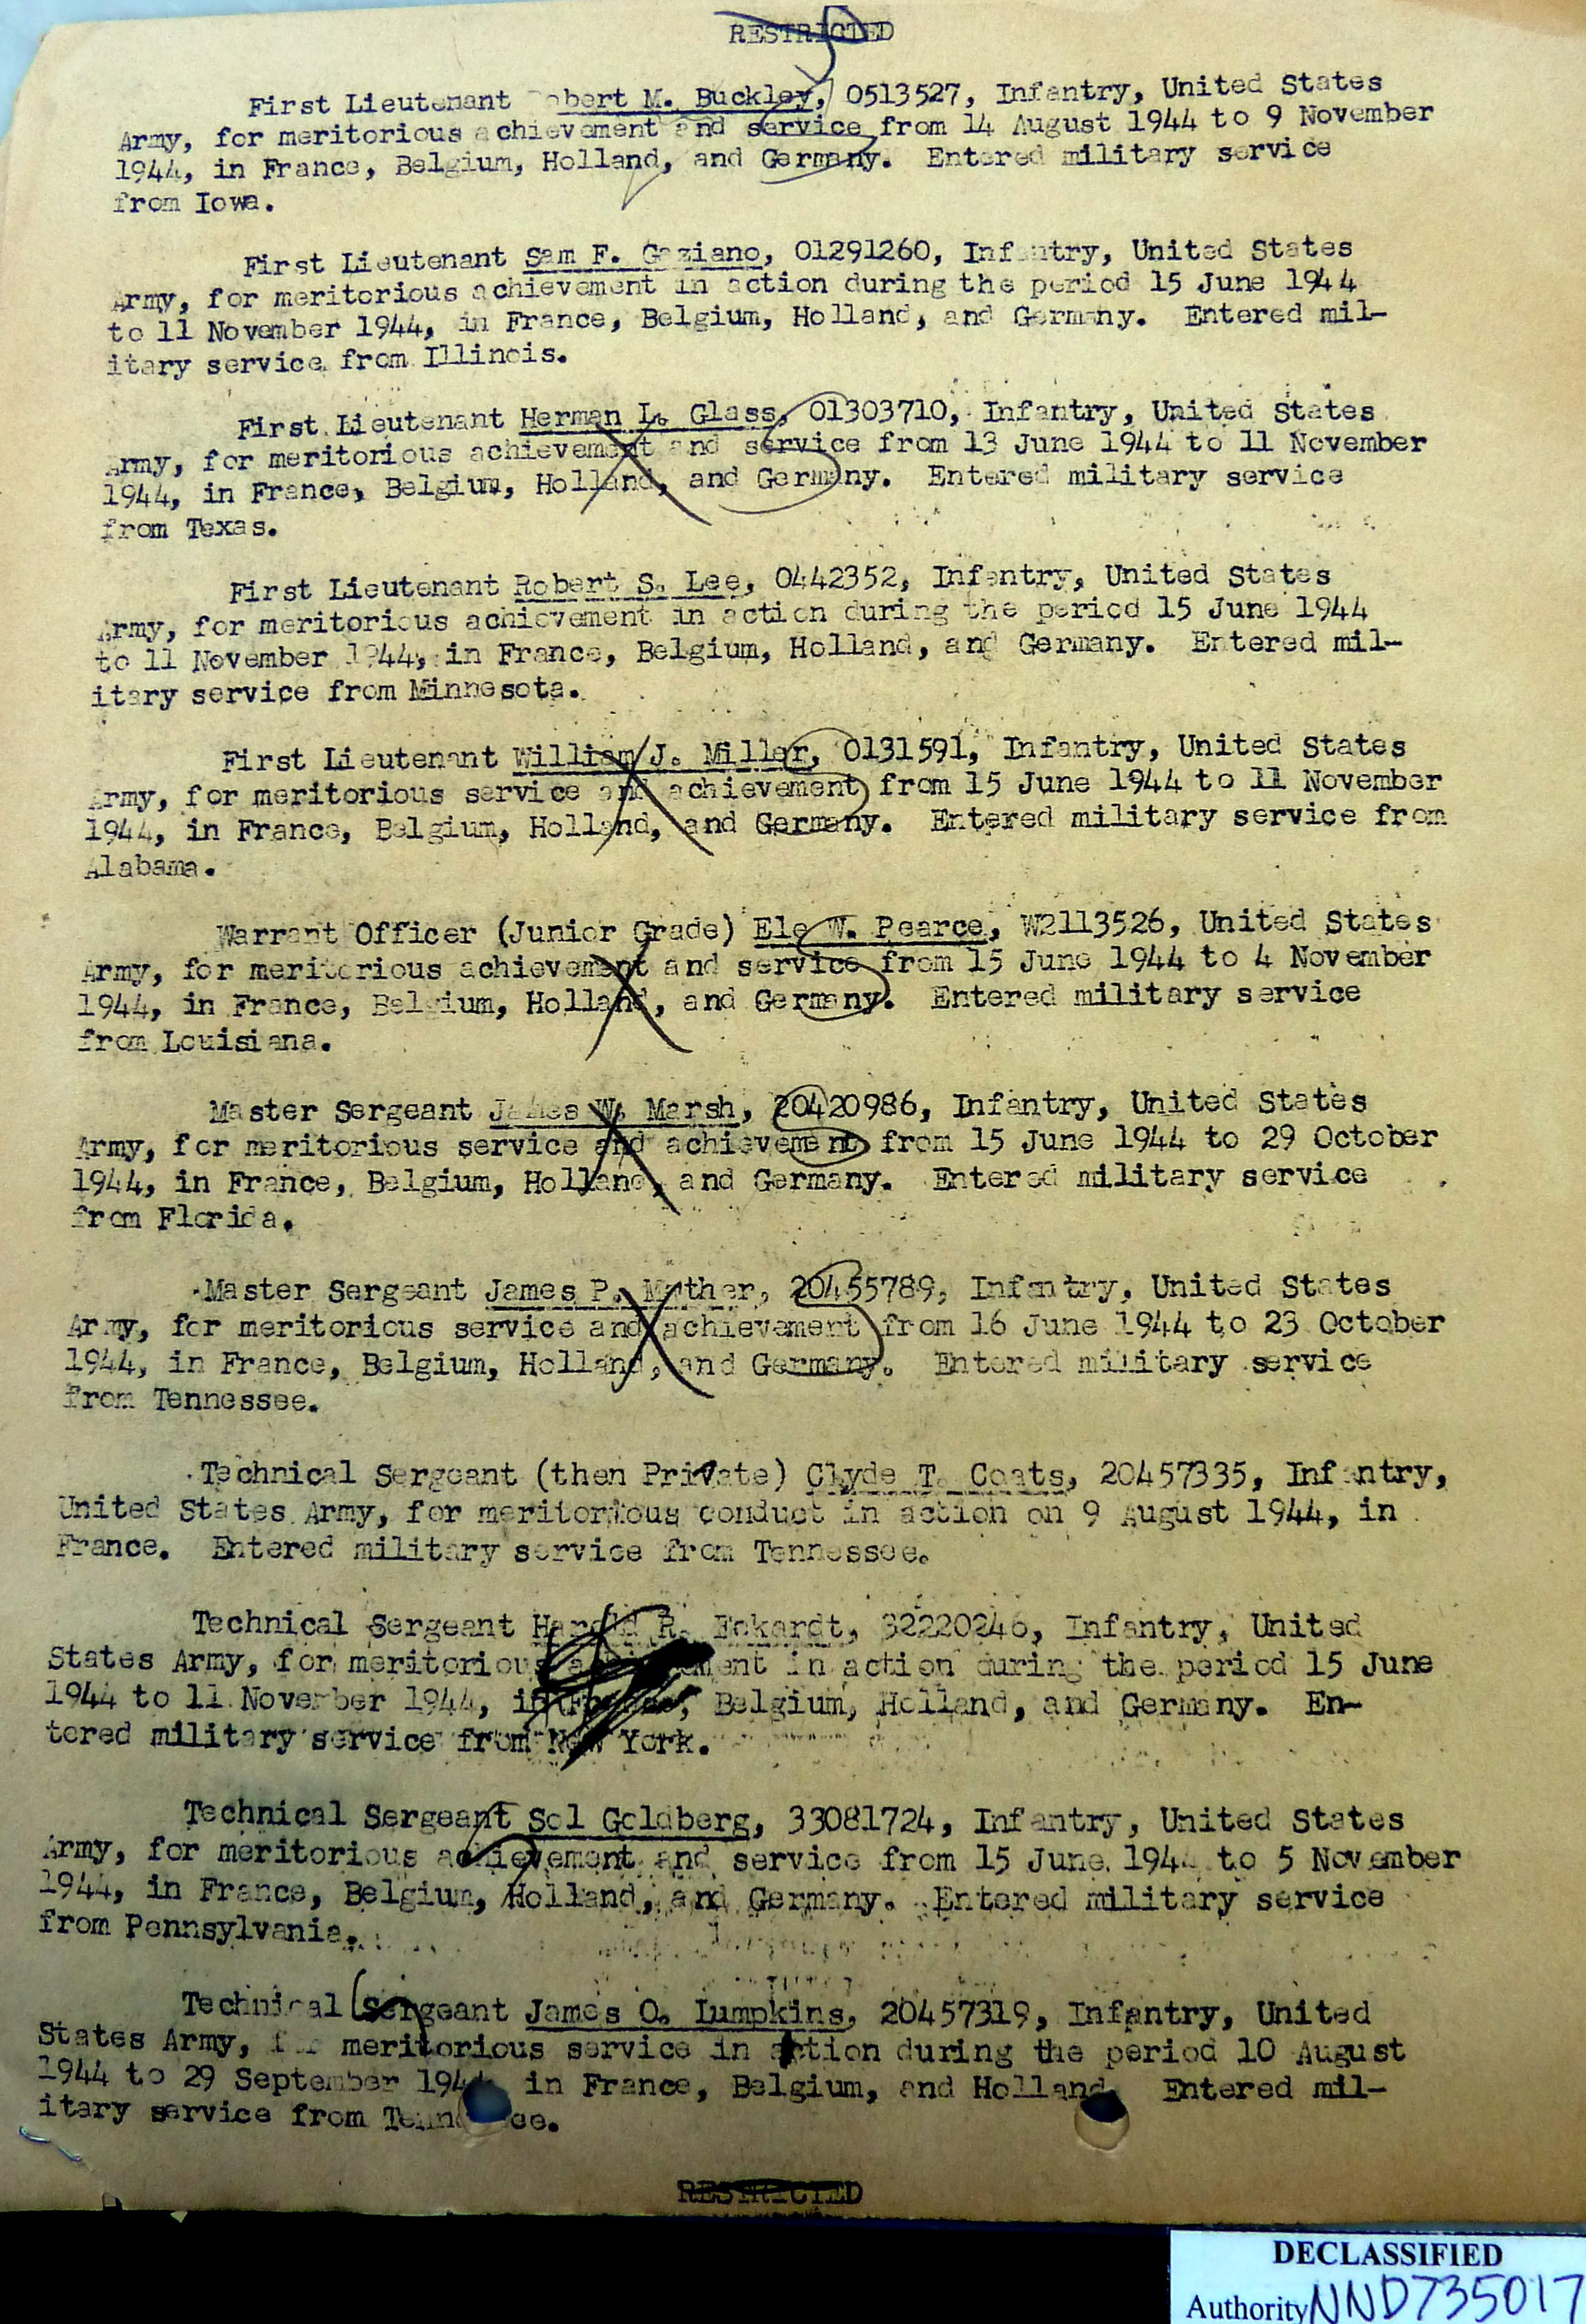 RESTRICTED
First Lieutenant Robert M. Buckley, 0513527, Infantry, United States
Army, for meritorious achievement and service from 14 August 1944 to 9 November
1944, in France, Belgium, Holland, and Germany. Entered military service
from Iowa.
First Lieutenant Sam F. Gaziano, 01291260, Infantry, United States
Army, for meritorious achievement in action during the period 15 June 1944
to 11 November 1944, in France, Belgium, Holland, and Germany. Entered mil-
itary service from Illinois.
First Lieutenant Herman L. Glass, 01303710, Infantry, United States
Army, for meritorious achievement and service from 13 June 1944 to 11 November
1944, in France, Belgium, Holland, and Germany. Entered military service
from Texas.
First Lieutenant Robert S. Lee, 0442352, Infantry, United States
Army, for meritorious achievement in action during the period 15 June 1944
to 11 November 1944, in France, Belgium, Holland, and Germany. Entered mil-
itary service from Minnesota.
First Lieutenant William J. Miller, 0131591, Infantry, United States
Army, for meritorious service and achievement from 15 June 1944 to 11 November
1944, in France, Belgium, Holland, and Germany. Entered military service from
Alabama.
Warrant Officer (Junior Grade) Ele W. Pearce, W2113526, United States
Army, for meritorious achievement and service from 15 June 1944 to 4 November
1944, in France, Belgium, Holland, and Germany. Entered military service
from Louisiana.
Master Sergeant James W. Marsh, 20420986, Infantry, United States
Army, for meritorious service and achievement from 15 June 1944 to 29 October
1944, in France, Belgium, Holland, and Germany. Entered military service
from Florida.
Master Sergeant James P. Mather, 20455789, Infantry, United States
Army, for meritorious service and achievement from 16 June 1944 to 23 October
1944, in France, Belgium, Holland, and Germany. Entered military service
from Tennessee.
Technical Sergeant (then Private) Clyde T. Coats, 20457335, Infantry,
United States Army, for meritorious conduct in action on 9 August 1944, in
France. Entered military service from Tennessee.
Technical Sergeant Harold R. Eckardt, 32220246, Infantry, United
States Army, for meritorious achievement in action during the period 15 June
1944 to 11 November 1944, in France, Belgium, Holland, and Germany. En-
tered military service from New York.
Technical Sergeant Sol Goldberg, 33081724, Infantry, United States
Army, for meritorious achievement and service from 15 June 1944 to 5 November
1944, in France, Belgium, Holland, and Germany. Entered military service
from Pennsylvania.
Technical Sergeant James O. Lumpkins, 20457319, Infantry, United
States Army, for meritorious service in action during the period 10 August
1944 to 29 September 1944 in France, Belgium, and Holland. Entered mil-
itary service from Tennessee.
RESTRICTED
DECLASSIFIED
Authority NND735017